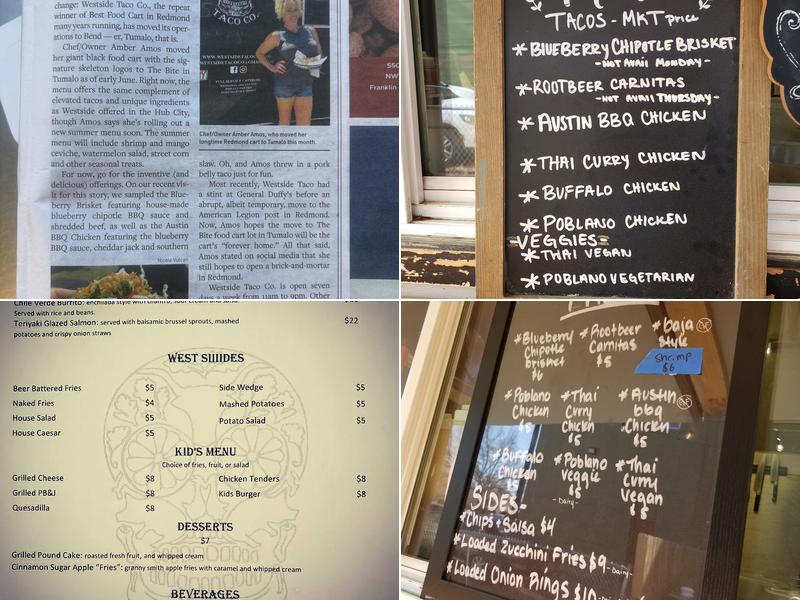 change: Westside Taco Co., the repeat
winner of Best Food Cart in Redmond
many years running, has moved its oper-
ations to Bend — er, Tumalo, that is.
Chef/Owner Amber Amos moved
her giant black food cart with the sig-
nature skeleton logos to The Bite in
Tumalo as of early June. Right now, the
menu offers the same complement of
elevated tacos and unique ingredients
as Westside offered in the Hub City,
though Amos says she's rolling out a
new summer menu soon. The summer
menu will include shrimp and mango
ceviche, watermelon salad, street corn
and other seasonal treats.
For now, go for the inventive (and
delicious) offerings. On our recent vis-
it for this story, we sampled the Blue-
berry Brisket featuring house-made
blueberry chipotle BBQ sauce and
shredded beef, as well as the Austin
BBQ Chicken featuring the blueberry
BBQ sauce, cheddar jack and southern
Nicole Vulcan
TACO CO.
Chef/Owner Amber Amos, who moved her
longtime Redmond cart to Tumalo this month.
slaw. Oh, and Amos threw in a pork
belly taco just for fun.
Most recently, Westside Taco had
a stint at General Duffy's before an
abrupt, albeit temporary, move to the
American Legion post in Redmond.
Now, Amos hopes the move to The
Bite food cart lot in Tumalo will be the
cart's "forever home." All that said,
Amos stated on social media that she
still hopes to open a brick-and-mortar
in Redmond.
Westside Taco Co. is open seven
days a week from 11am to 9pm. Other
550
NW
Franklin
TACOS - MKT price
* BLUEBERRY CHIPOTLE BRISKET
-NOT AVAIL MONDAY-
* ROOTBEER CARNITAS
-NOT AVAIL THURSDAY-
* AUSTIN BBQ CHICKEN
* THAI CURRY CHICKEN
* BUFFALO CHICKEN
* POBLANO CHICKEN
-VEGGIES-
* THAI VEGAN
* POBLANO VEGETARIAN
Chile Verde Burrito: enchilada style with cilantro, sour cream and salsa.
Served with rice and beans.
Teriyaki Glazed Salmon: served with balsamic brussel sprouts, mashed $22
potatoes and crispy onion straws
WEST SIIIDES
Beer Battered Fries $5 Side Wedge $5
Naked Fries $4 Mashed Potatoes $5
House Salad $5 Potato Salad $5
House Caesar $5
KID'S MENU
Choice of fries, fruit, or salad
Grilled Cheese $8 Chicken Tenders $8
Grilled PB&J $8 Kids Burger $8
Quesadilla $8
DESSERTS
$7
Grilled Pound Cake: roasted fresh fruit, and whipped cream
Cinnamon Sugar Apple "Fries": granny smith apple fries with caramel and whipped cream
BEVERAGES
* Blueberry Chipotle brisket $6
* Rootbeer Carnitas $5
* baja style Shrimp $6
* Poblano Chicken $5
* Thai Curry Chicken $5
* AUSTIN bbq Chicken $5
* Buffalo Chicken $5
* Poblano Veggie $5 -Dairy-
* Thai Curry Vegan $5
SIDES-
* Chips + Salsa $4
* Loaded Zucchini Fries $9 -Dairy-
* Loaded Onion Rings $10